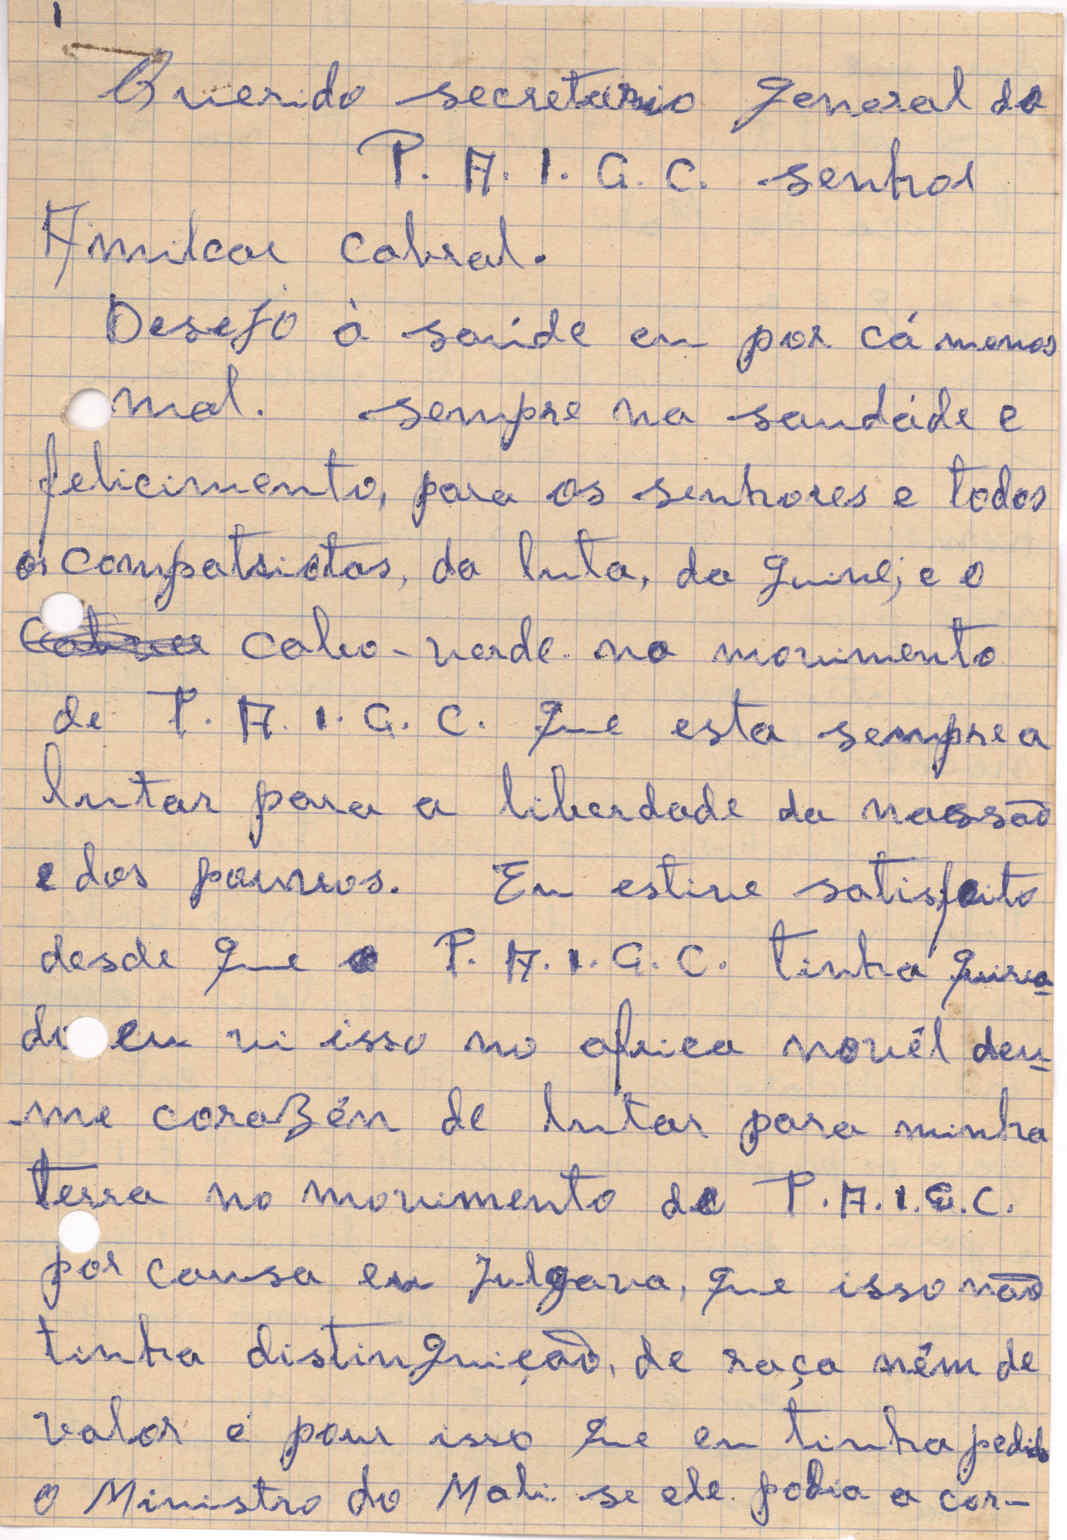 1
Querido secretario general do
P. A. I. G. C. senhor
Amilcar Cabral.
Desejo à saúde eu por cá menos
mal. sempre na saudáde e
felicimento, para os senhores e todos
os compatriotas, da luta, da guiné, e o
cabo-verde no movimento
de P. A. I. G. C. que esta sempre a
lutar para a liberdade da nassão
e dos pouvos. Eu estive satisfeito
desde que o P. A. I. G. C. tinha
do eu vi isso no africa novél deu-
-me coraZén de lutar para minha
terra no movimento de P. A. I. G. C.
por causa eu Julgava, que isso não
tinha distinguição, de raça ném de
valor é pour isso que eu tinha pedido
o Ministro do Mali se ele podia a cor-